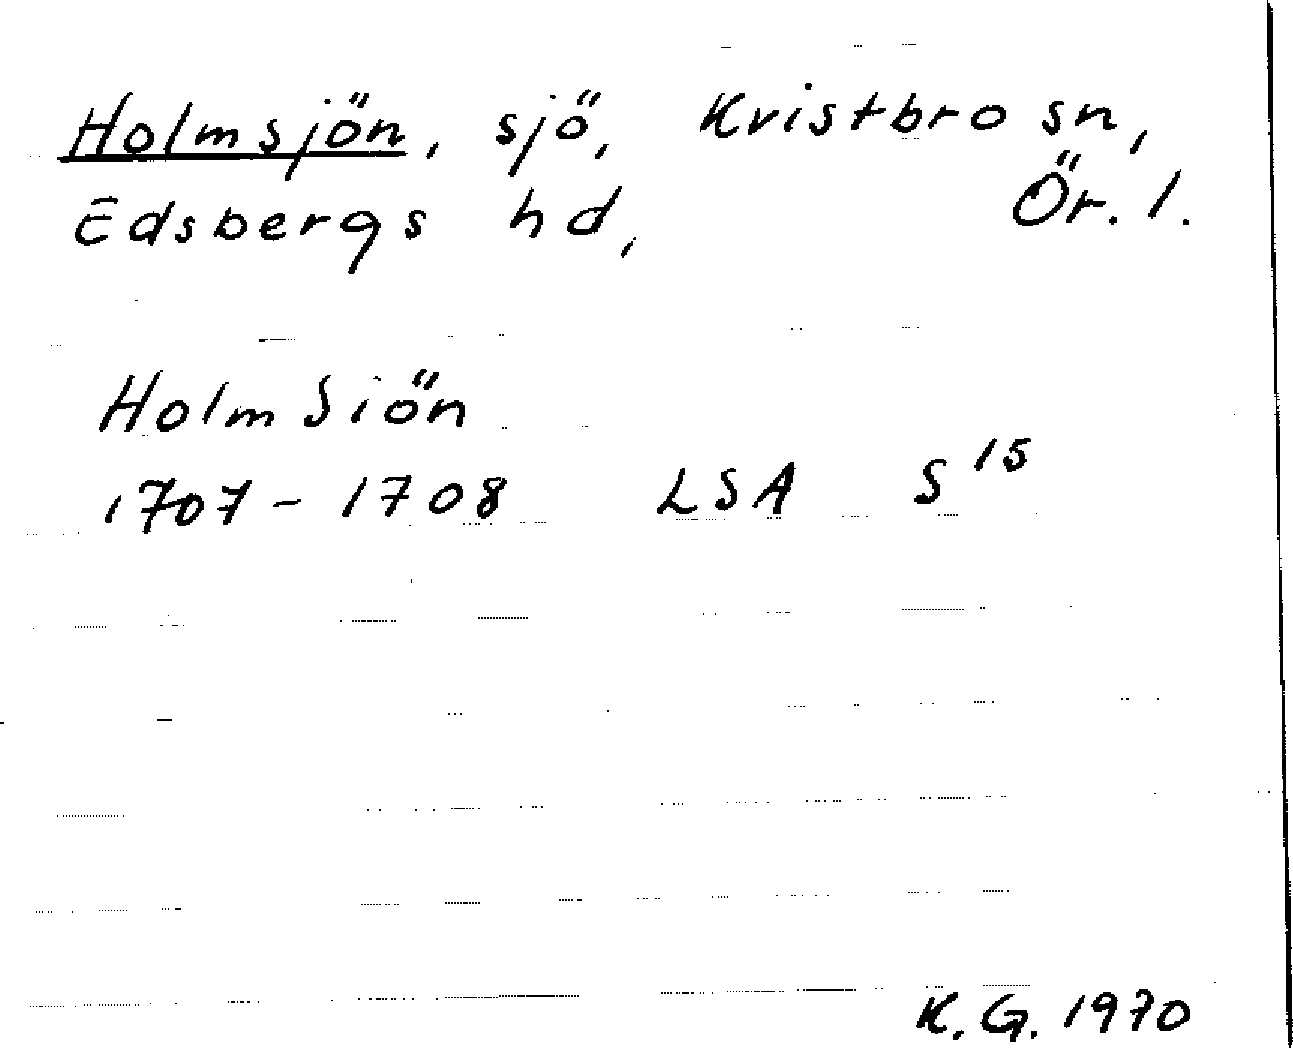 Holmsjön, sjö, Kvistbro sn,
Edsbergs hd, Ör. l.
HolmSiön
1707-1708 LSA S 15
K. G. 1970